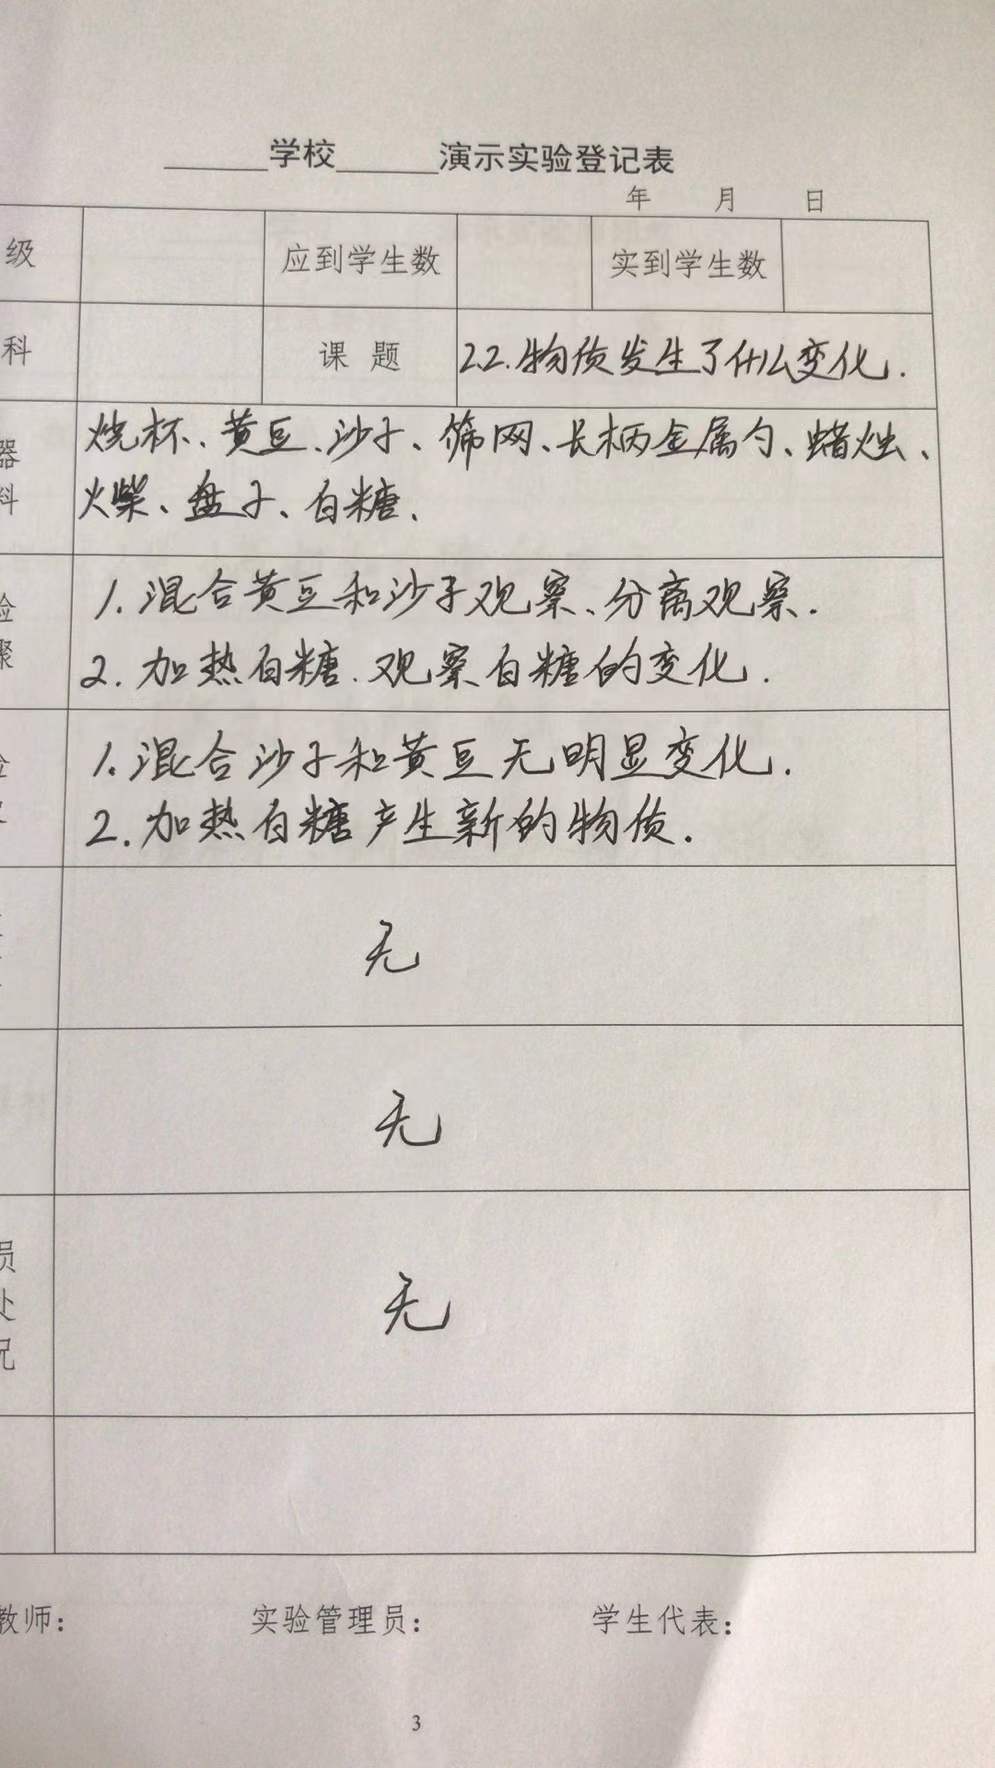 ______学校______演示实验登记表
年 月 日
级 应到学生数 实到学生数
科 课 题 2.2.物质发生了什么变化.
器 烧杯、黄豆、沙子、筛网、长柄金属勺、蜡烛、
料 火柴、盘子、白糖.
验 1.混合黄豆和沙子观察、分离观察.
骤 2.加热白糖.观察白糖的变化.
1.混合沙子和黄豆无明显变化.
2.加热白糖产生新的物质.
无
无
员
处 无
况
教师： 实验管理员： 学生代表：
3